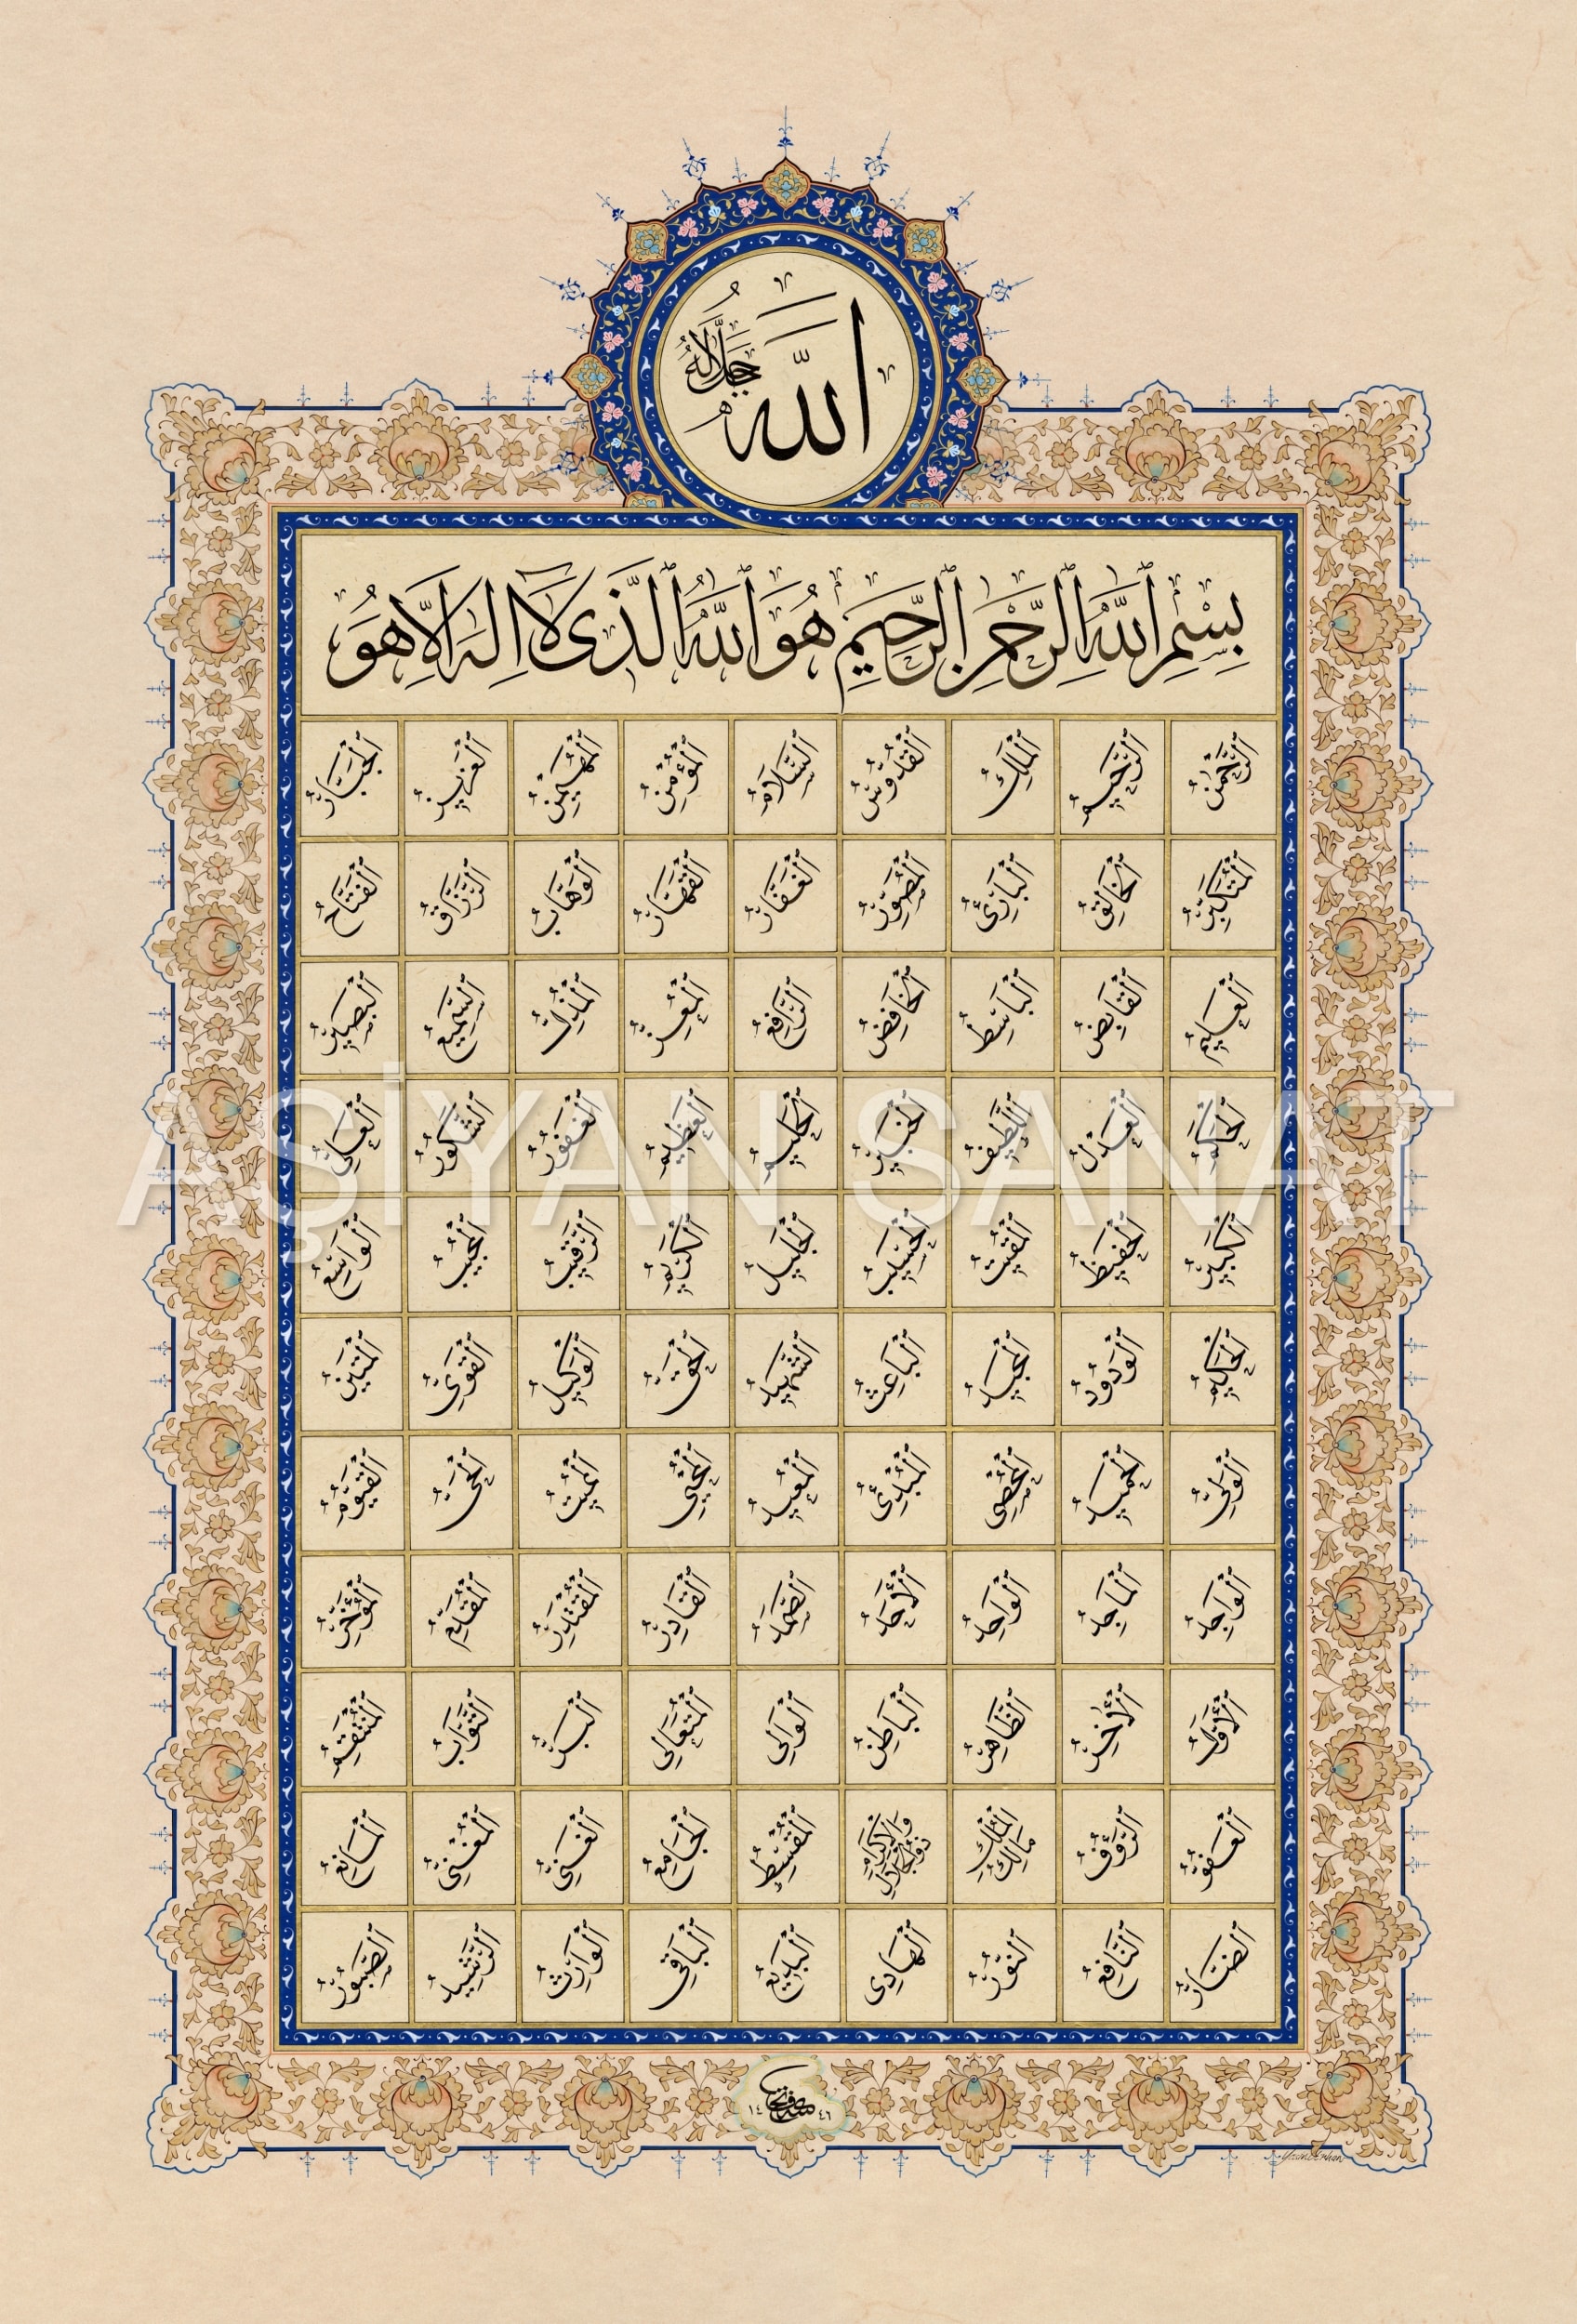 اَللّٰهُ جَلَّ جَلَالُهُ
بِسْمِ ٱللّٰهِ ٱلرَّحْمٰنِ ٱلرَّحِيمِ هُوَ ٱللّٰهُ ٱلَّذِى لَا اِلٰهَ اِلَّا هُوَ
ٱلرَّحْمٰنُ ٱلرَّحِيمُ ٱلْمَلِكُ ٱلْقُدُّوسُ ٱلسَّلَامُ ٱلْمُؤْمِنُ ٱلْمُهَيْمِنُ ٱلْعَزِيزُ ٱلْجَبَّارُ
ٱلْمُتَكَبِّرُ ٱلْخَالِقُ ٱلْبَارِئُ ٱلْمُصَوِّرُ ٱلْغَفَّارُ ٱلْقَهَّارُ ٱلْوَهَّابُ ٱلرَّزَّاقُ ٱلْفَتَّاحُ
ٱلْعَلِيمُ ٱلْقَابِضُ ٱلْبَاسِطُ ٱلْخَافِضُ ٱلرَّافِعُ ٱلْمُعِزُّ ٱلْمُذِلُّ ٱلسَّمِيعُ ٱلْبَصِيرُ
ٱلْحَكَمُ ٱلْعَدْلُ ٱللَّطِيفُ ٱلْخَبِيرُ ٱلْحَلِيمُ ٱلْعَظِيمُ ٱلْغَفُورُ ٱلشَّكُورُ ٱلْعَلِىُّ
ٱلْكَبِيرُ ٱلْحَفِيظُ ٱلْمُقِيتُ ٱلْحَسِيبُ ٱلْجَلِيلُ ٱلْكَرِيمُ ٱلرَّقِيبُ ٱلْمُجِيبُ ٱلْوَاسِعُ
ٱلْحَكِيمُ ٱلْوَدُودُ ٱلْمَجِيدُ ٱلْبَاعِثُ ٱلشَّهِيدُ ٱلْحَقُّ ٱلْوَكِيلُ ٱلْقَوِىُّ ٱلْمَتِينُ
ٱلْوَلِىُّ ٱلْحَمِيدُ ٱلْمُحْصِى ٱلْمُبْدِئُ ٱلْمُعِيدُ ٱلْمُحْيِى ٱلْمُمِيتُ ٱلْحَىُّ ٱلْقَيُّومُ
ٱلْوَاجِدُ ٱلْمَاجِدُ ٱلْوَاحِدُ ٱلْأَحَدُ ٱلصَّمَدُ ٱلْقَادِرُ ٱلْمُقْتَدِرُ ٱلْمُقَدِّمُ ٱلْمُؤَخِّرُ
ٱلْأَوَّلُ ٱلْأٰخِرُ ٱلظَّاهِرُ ٱلْبَاطِنُ ٱلْوَالِى ٱلْمُتَعَالِى ٱلْبَرُّ ٱلتَّوَّابُ ٱلْمُنْتَقِمُ
ٱلْعَفُوُّ ٱلرَّؤُفُ مَالِكُ ٱلْمُلْكِ ذُو ٱلْجَلَالِ وَٱلْإِكْرَامِ ٱلْمُقْسِطُ ٱلْجَامِعُ ٱلْغَنِىُّ ٱلْمُغْنِى ٱلْمَانِعُ
ٱلضَّارُّ ٱلنَّافِعُ ٱلنُّورُ ٱلْهَادِى ٱلْبَدِيعُ ٱلْبَاقِى ٱلْوَارِثُ ٱلرَّشِيدُ ٱلصَّبُورُ
AŞİYAN SANAT
١٤ ٤١